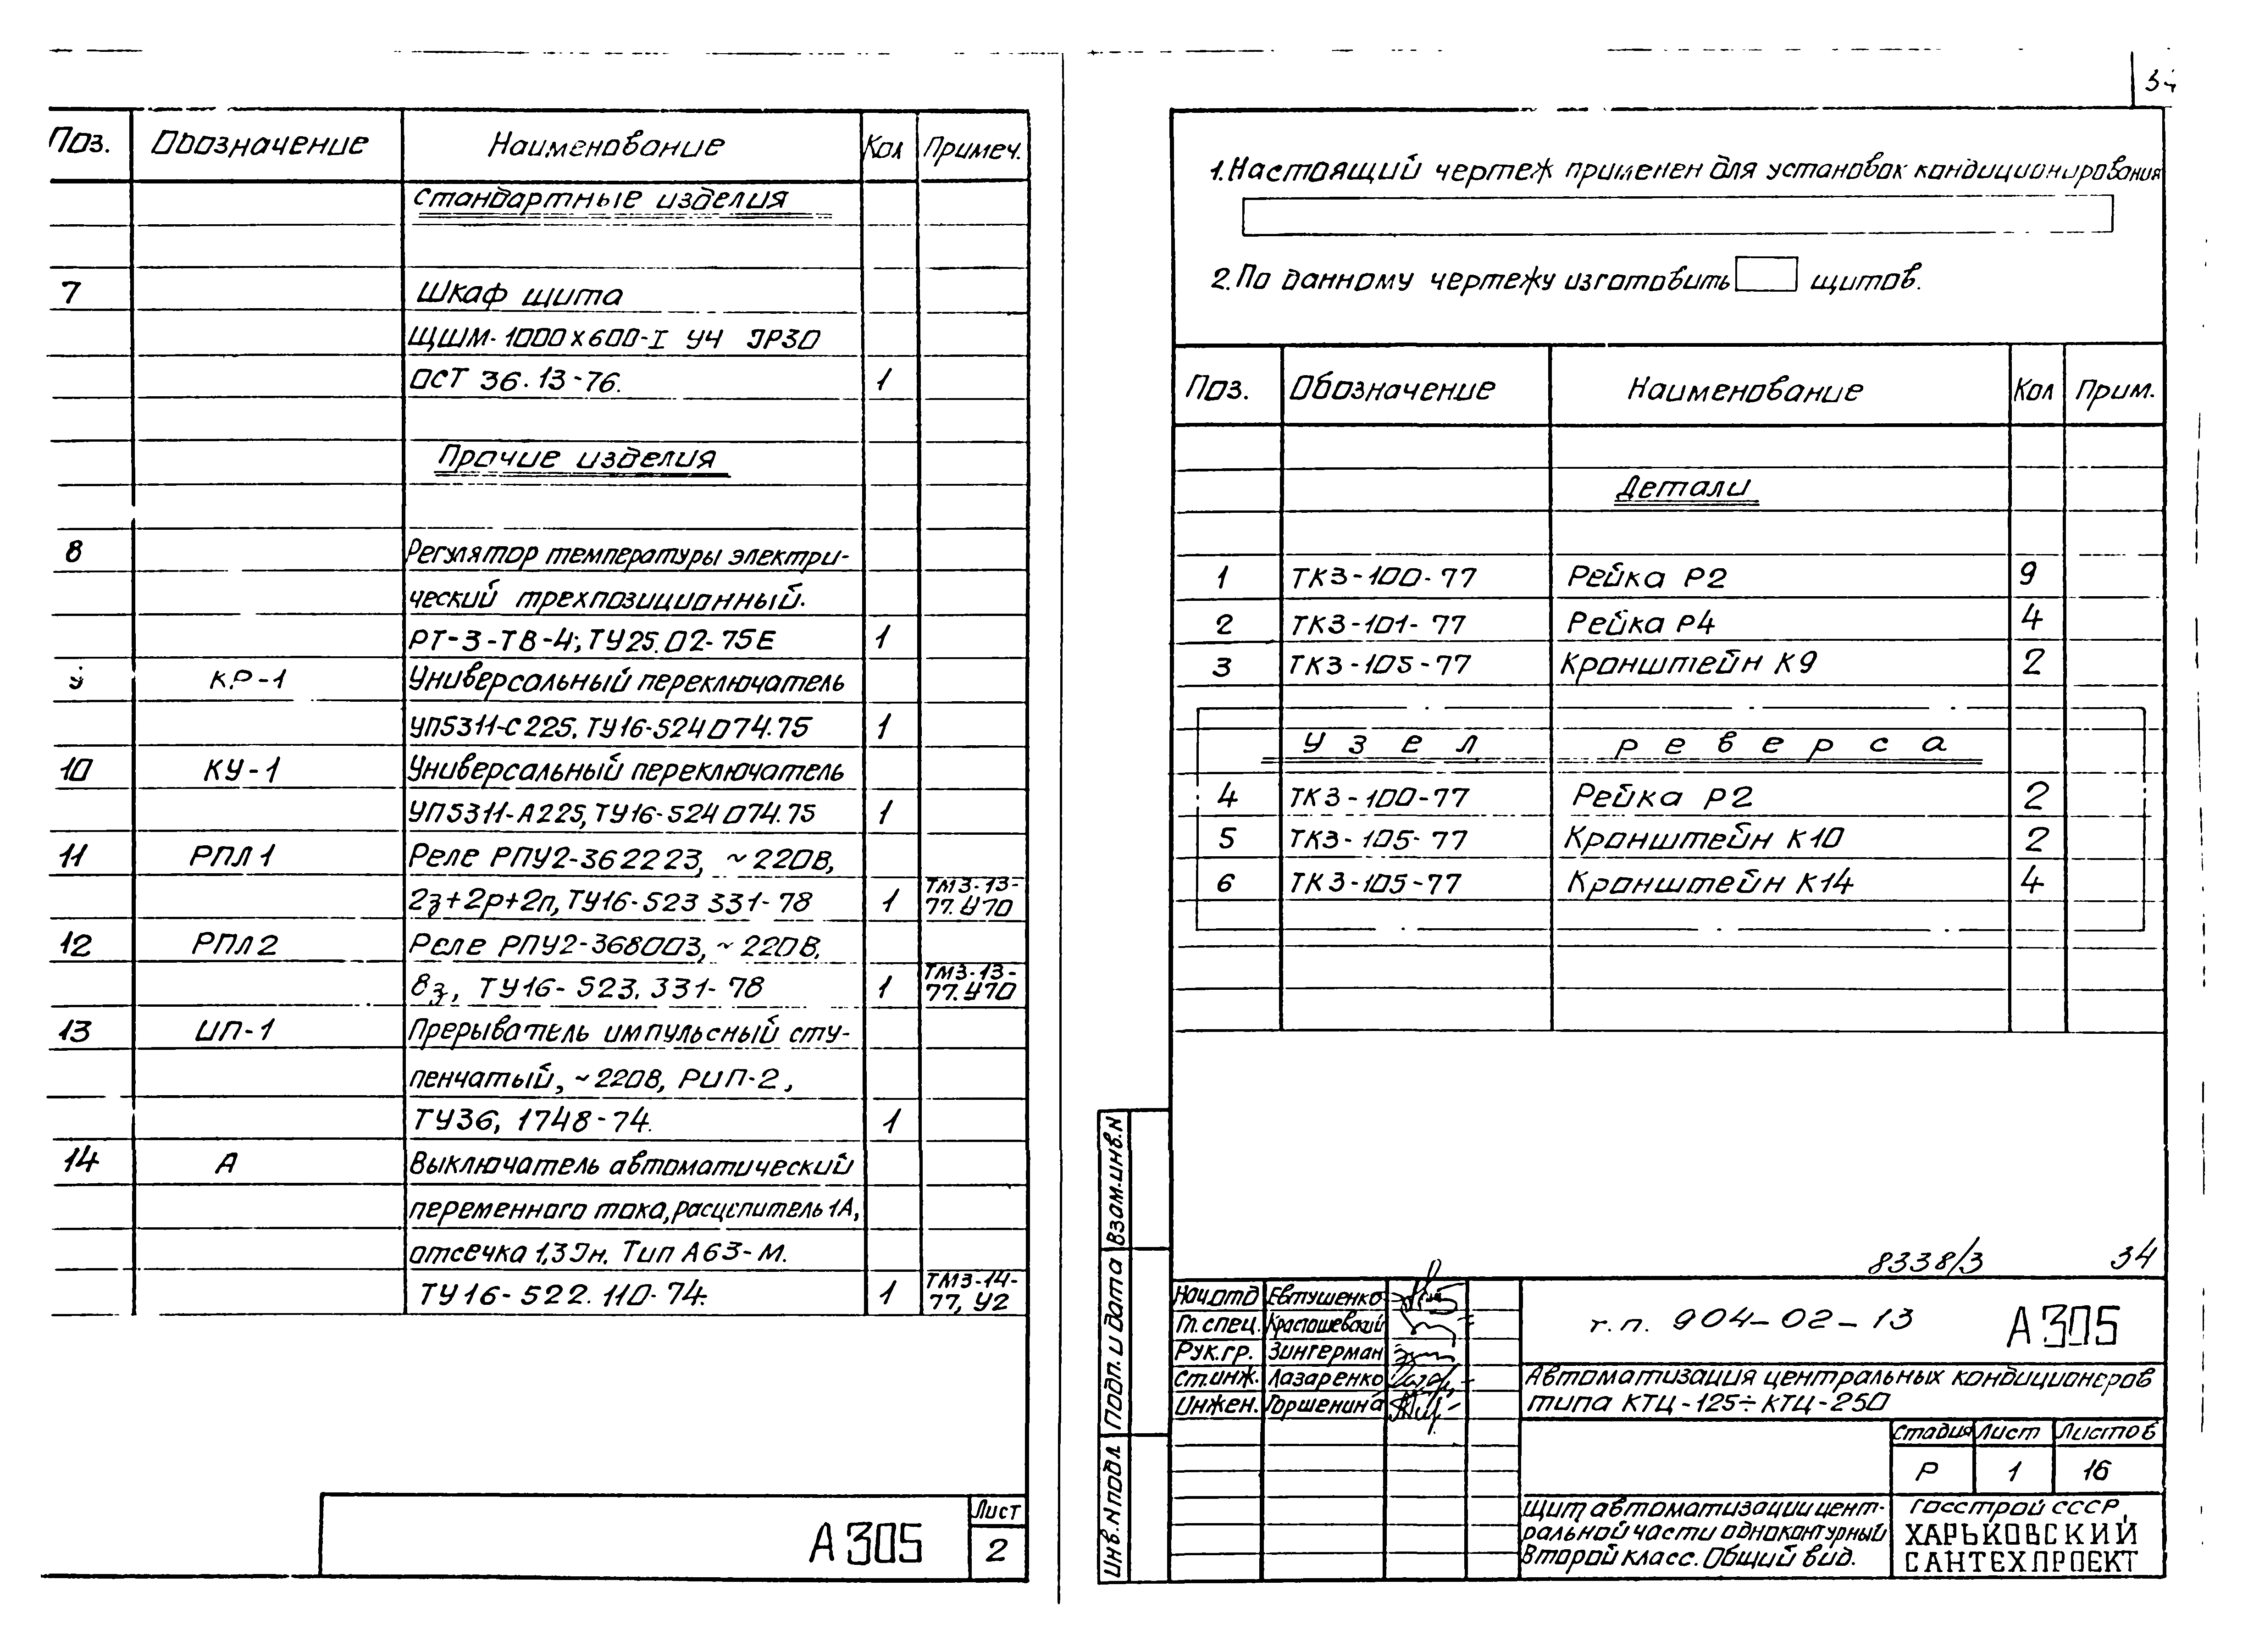 Поз. Обозначение Наименование Кол Примеч.
Стандартные изделия
7 Шкаф щита
ЩШМ-1000х600-I У4 IP30
ОСТ 36.13-76. 1
Прочие изделия
8 Регулятор температуры электри-
ческий трехпозиционный.
РТ-3-ТВ-4; ТУ25.02-75Е 1
9 КР-1 Универсальный переключатель
УП5311-С225, ТУ16-524 074.75 1
10 КУ-1 Универсальный переключатель
УП5311-А225, ТУ16-524 074.75 1
11 РПЛ1 Реле РПУ2-362223, ~220В,
2з+2р+2п, ТУ16-523 331-78 1 ТМ3-13-
77.У70
12 РПЛ2 Реле РПУ2-368003, ~220В,
8з, ТУ16-523.331-78 1 ТМ3-13-
77.У70
13 ИП-1 Прерыватель импульсный сту-
пенчатый, ~220В, РИП-2,
ТУ36, 1748-74. 1
14 А Выключатель автоматический
переменного тока, расцепитель 1А,
отсечка 1,3Iн. Тип А63-М.
ТУ16-522.110-74. 1 ТМ3-14-
77, У2
А305
Лист
2
1. Настоящий чертеж применен для установок кондиционирования
2. По данному чертежу изготовить щитов.
Поз. Обозначение Наименование Кол Прим.
Детали
1 ТК3-100-77 Рейка Р2 9
2 ТК3-101-77 Рейка Р4 4
3 ТК3-105-77 Кронштейн К9 2
Узел реверса
4 ТК3-100-77 Рейка Р2 2
5 ТК3-105-77 Кронштейн К10 2
6 ТК3-105-77 Кронштейн К14 4
8338/3 34
Взам.инв.N
Подп. и дата
Инв.N подл
Нач.отд Евтушенко
Гл.спец. Красошевский
Рук.гр. Зингерман
Ст.инж. Лазаренко
Инжен. Горшенина
т.п. 904-02-13 А305
Автоматизация центральных кондиционеров
типа КТЦ-125÷КТЦ-250
Стадия Лист Листов
Р 1 16
Щит автоматизации цент-
ральной части одноконтурный
Второй класс. Общий вид.
ГОССТРОЙ СССР,
ХАРЬКОВСКИЙ
САНТЕХПРОЕКТ